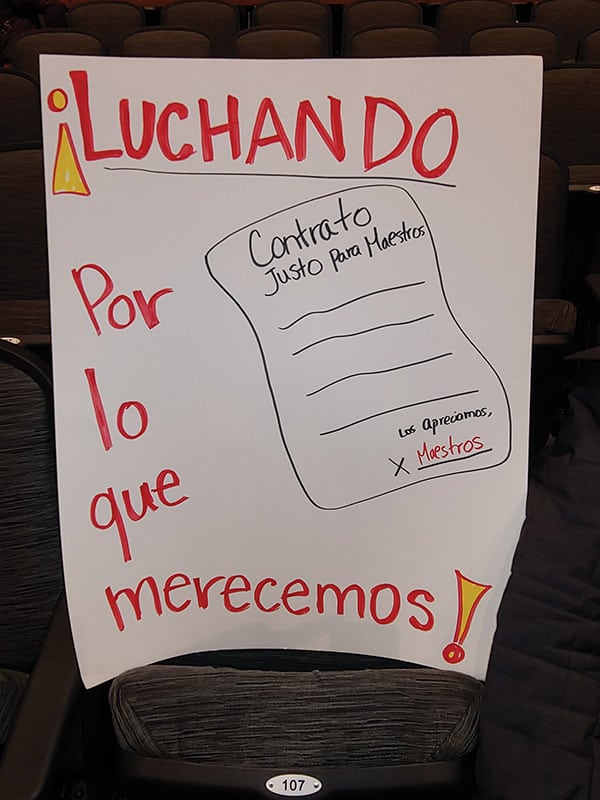 ¡LUCHANDO
Contrato
Justo Para Maestros
Por
lo
que
Los Apreciamos,
X Maestros
merecemos!
107